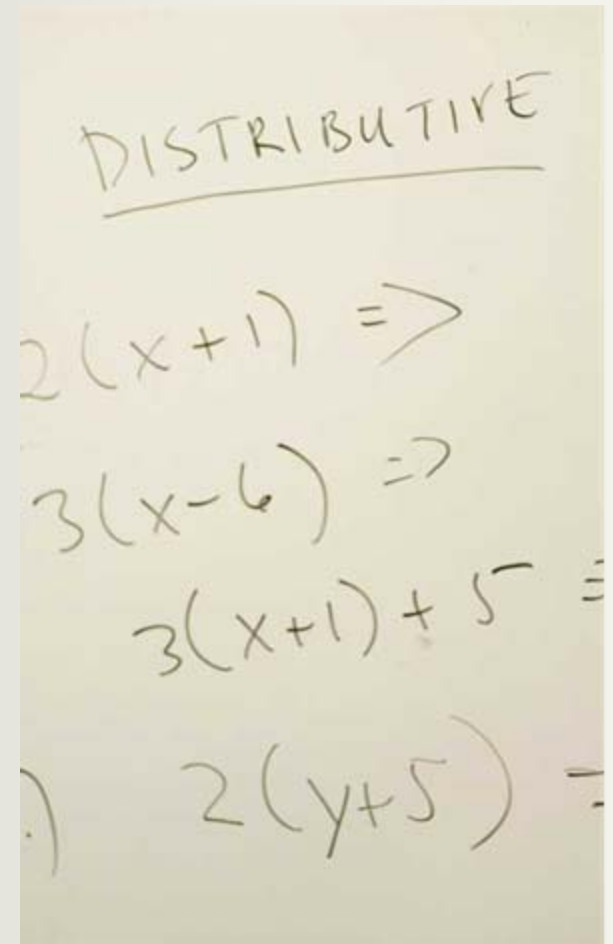 DISTRIBUTIVE
2(x+1) =>
3(x-6) =>
3(x+1) + 5 =
.) 2(y+5) =